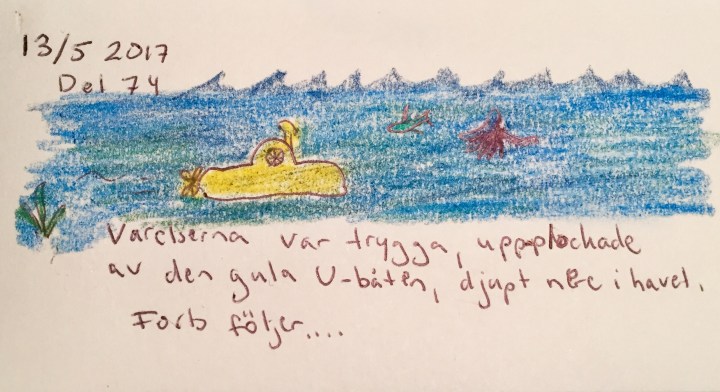 13/5 2017
Del 74
Varelserna var trygga, uppplockade
av den gula U-båten, djupt nere i havet.
Forts följer....